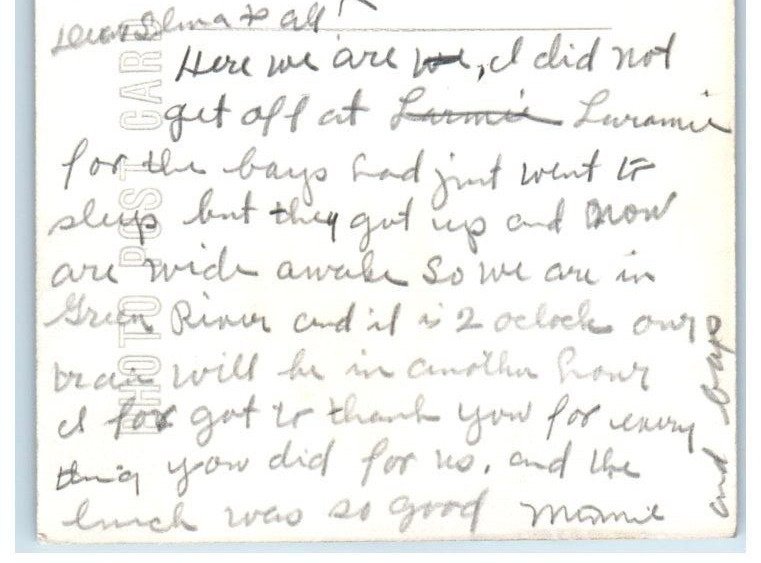 Dear Selma & all
Here we are we, I did not
get off at Larmie Laramie
for the boys had just went to
sleep but they got up and now
are wide awake so we are in
Green River and it is 2 oclock our
train will be in another hour
I for got to thank you for every
thing you did for us, and the
lunch was so good Mamie
and boys
PHOTO POST CARD